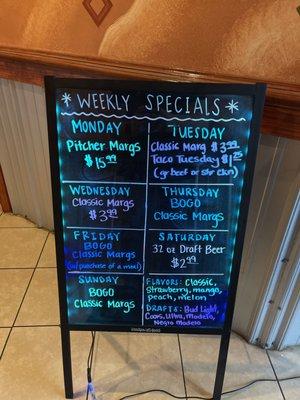 WEEKLY SPECIALS
MONDAY
Pitcher Margs
$15.99
TUESDAY
Classic Marg $3.99
Taco Tuesday $1.25
(gr beef or shr ckn)
WEDNESDAY
Classic Margs
$3.99
THURSDAY
BOGO
Classic Margs
FRIDAY
BOGO
Classic Margs
(w/ purchase of a meal)
SATURDAY
32 oz Draft Beer
$2.99
SUNDAY
BOGO
Classic Margs
FLAVORS: Classic,
Strawberry, mango,
peach, melon
DRAFTS: Bud Light,
Coors, Ultra, Modelo,
Negra Modelo